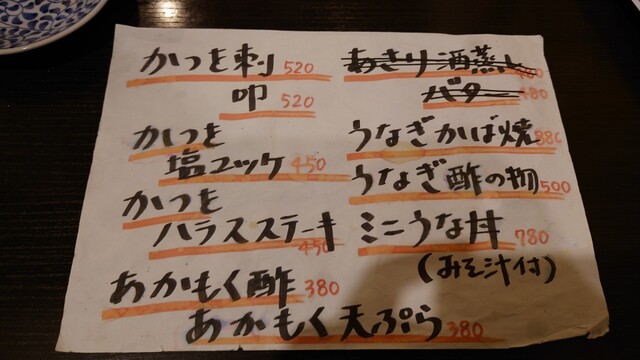 かつを刺 520
叩 520
かつを
塩ユッケ 450
かつを
ハラスステーキ 450
あかもく酢 380
あかもく天ぷら 380
あさり酒蒸し 480
バター 480
うなぎかば焼 880
うなぎ酢の物 500
ミニうな丼 780
(みそ汁付)